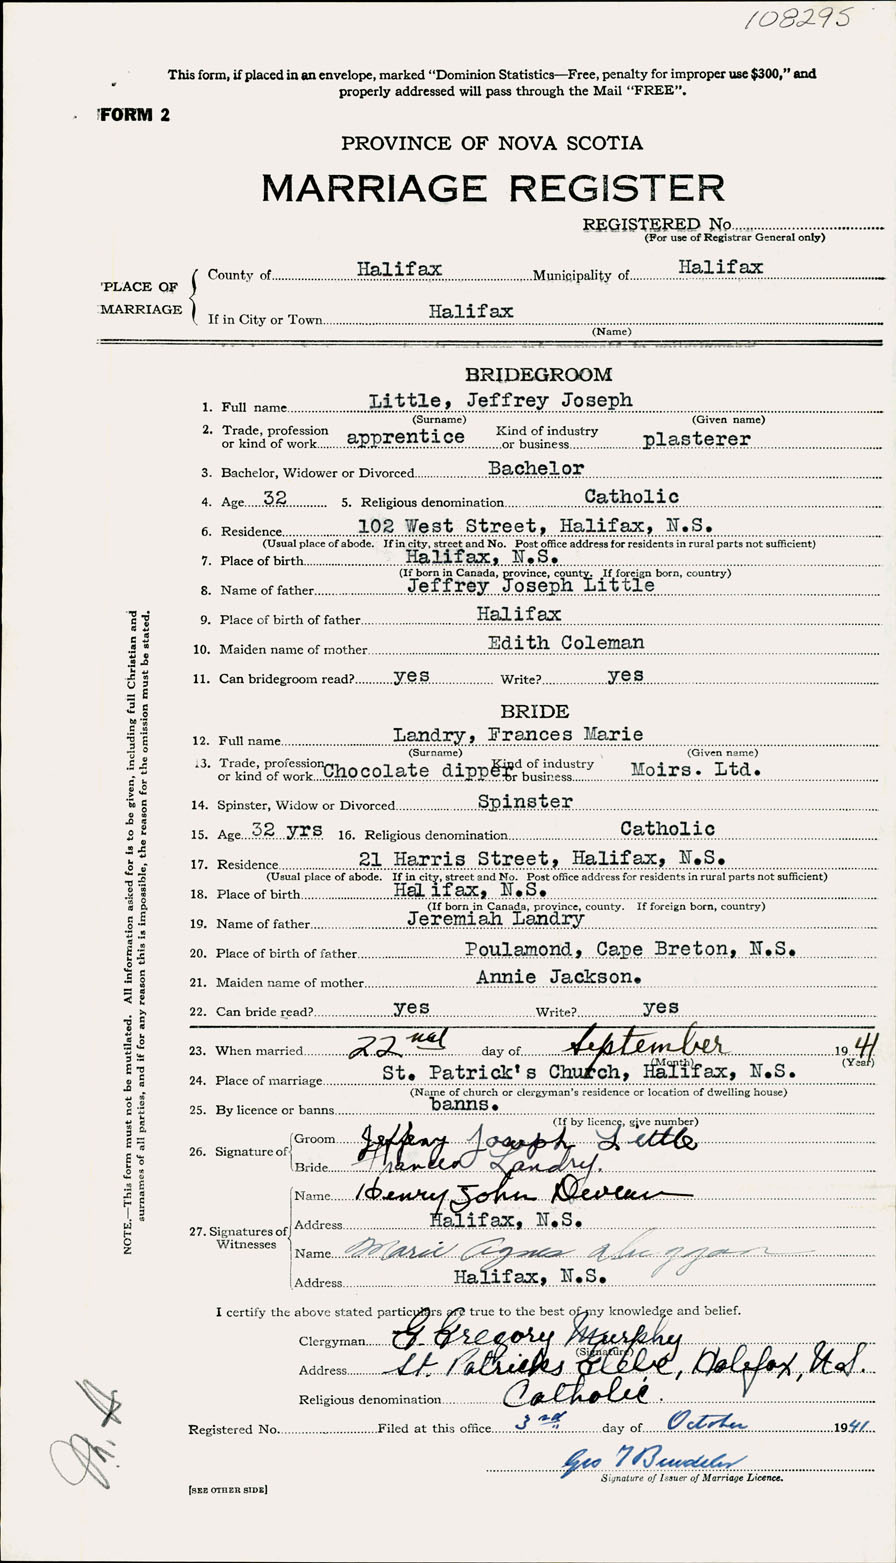 108295
This form, if placed in an envelope, marked "Dominion Statistics—Free, penalty for improper use $300," and
properly addressed will pass through the Mail "FREE".
FORM 2
PROVINCE OF NOVA SCOTIA
MARRIAGE REGISTER
REGISTERED No.
(For use of Registrar General only)
PLACE OF MARRIAGE
County of Halifax Municipality of Halifax
If in City or Town Halifax
(Name)
BRIDEGROOM
1. Full name Little, Jeffrey Joseph
(Surname) (Given name)
2. Trade, profession Kind of industry
or kind of work apprentice or business plasterer
3. Bachelor, Widower or Divorced Bachelor
4. Age 32 5. Religious denomination Catholic
6. Residence 102 West Street, Halifax, N.S.
(Usual place of abode. If in city, street and No. Post office address for residents in rural parts not sufficient)
7. Place of birth Halifax, N.S.
(If born in Canada, province, county. If foreign born, country)
8. Name of father Jeffrey Joseph Little
9. Place of birth of father Halifax
10. Maiden name of mother Edith Coleman
11. Can bridegroom read? yes Write? yes
BRIDE
12. Full name Landry, Frances Marie
(Surname) (Given name)
13. Trade, profession Kind of industry
or kind of work Chocolate dipper or business Moirs. Ltd.
14. Spinster, Widow or Divorced Spinster
15. Age 32 yrs 16. Religious denomination Catholic
17. Residence 21 Harris Street, Halifax, N.S.
(Usual place of abode. If in city, street and No. Post office address for residents in rural parts not sufficient)
18. Place of birth Halifax, N.S.
(If born in Canada, province, county. If foreign born, country)
19. Name of father Jeremiah Landry
20. Place of birth of father Poulamond, Cape Breton, N.S.
21. Maiden name of mother Annie Jackson.
22. Can bride read? yes Write? yes
23. When married 22nd day of September 1941
(Month) (Year)
24. Place of marriage St. Patrick's Church, Halifax, N.S.
(Name of church or clergyman's residence or location of dwelling house)
25. By licence or banns banns.
(If by licence, give number)
26. Signature of
Groom Jeffrey Joseph Little
Bride Frances Landry.
27. Signatures of Witnesses
Name Henry John Deveau
Address Halifax, N.S.
Name Marie Agnes
Address Halifax, N.S.
I certify the above stated particulars are true to the best of my knowledge and belief.
Clergyman G Gregory Murphy
(Signature)
Address St. Patricks Glebe, Halifax, N.S.
Religious denomination Catholic.
Registered No. Filed at this office 3rd day of October 1941
Geo
Signature of Issuer of Marriage Licence.
[SEE OTHER SIDE]
NOTE.—This form must not be mutilated. All information asked for is to be given, including full Christian and
surnames of all parties, and if for any reason this is impossible, the reason for the omission must be stated.